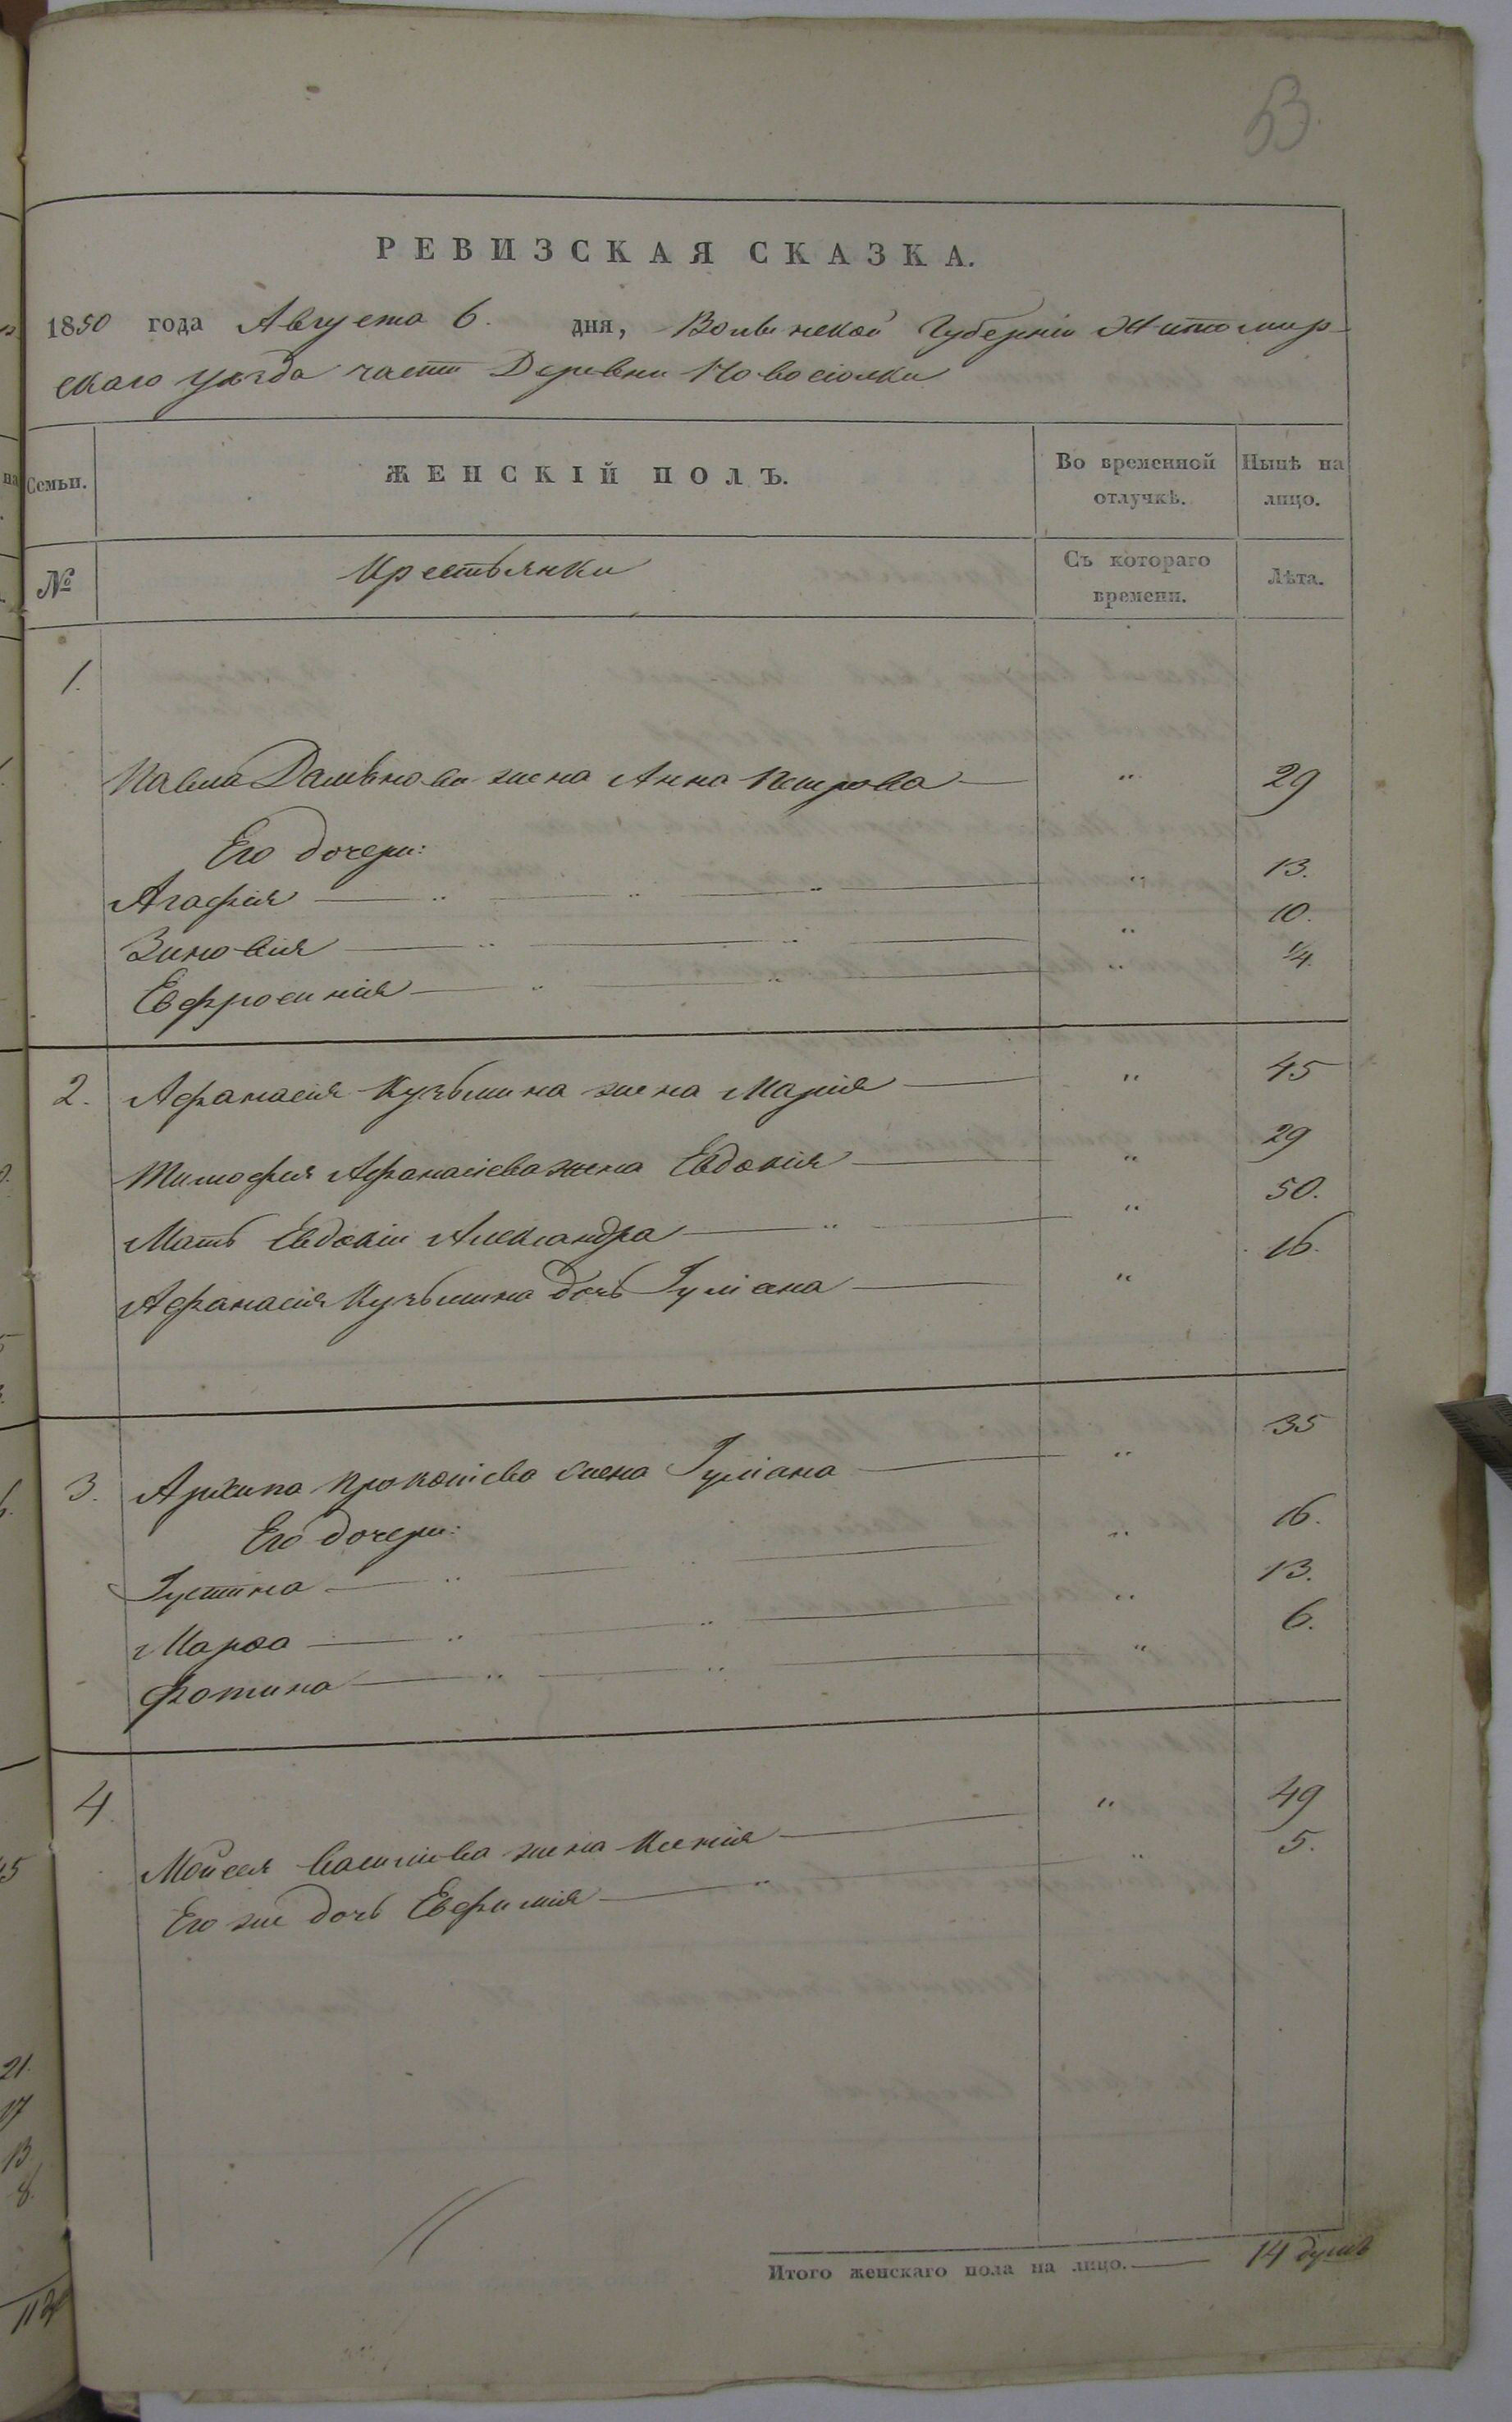 53.
РЕВИЗСКАЯ СКАЗКА.
1850 года Августа 6. дня, Волынской Губерніи Житомир-
скаго уѣзда части Деревни Новосіолки
Семьи. ЖЕНСКІЙ ПОЛЪ. Во временной отлучкѣ. Нынѣ на лицо.
№ Крестьянки Съ котораго времени. Лѣта.
1.
Павла Демьянова жена Анна Петрова — " 29
Его дочери:
Агафія — " — " — " — " 13.
Зиновія — " — " — " 10.
Евфросинія — " — " — " 1/4.
2. Афанасія Кузьмина жена Марія — " 45
Тимофея Афанасіева жена Евдокія — " 29
Мать Евдокіи Александра — " — " 50.
Афанасія Кузьмина дочь Іуліана — " 16.
3. Архипа Прокопіева жена Іуліана — " 35
Его дочери:
Іустина — " — " — " 16.
Марѳа — " — " — " 13.
Фотина — " — " — " 6.
4
Мойсея Василіева жена Ксенія — " 49
Его же дочь Евфимія — " — " 5.
Итого женскаго пола на лицо. — 14 душъ